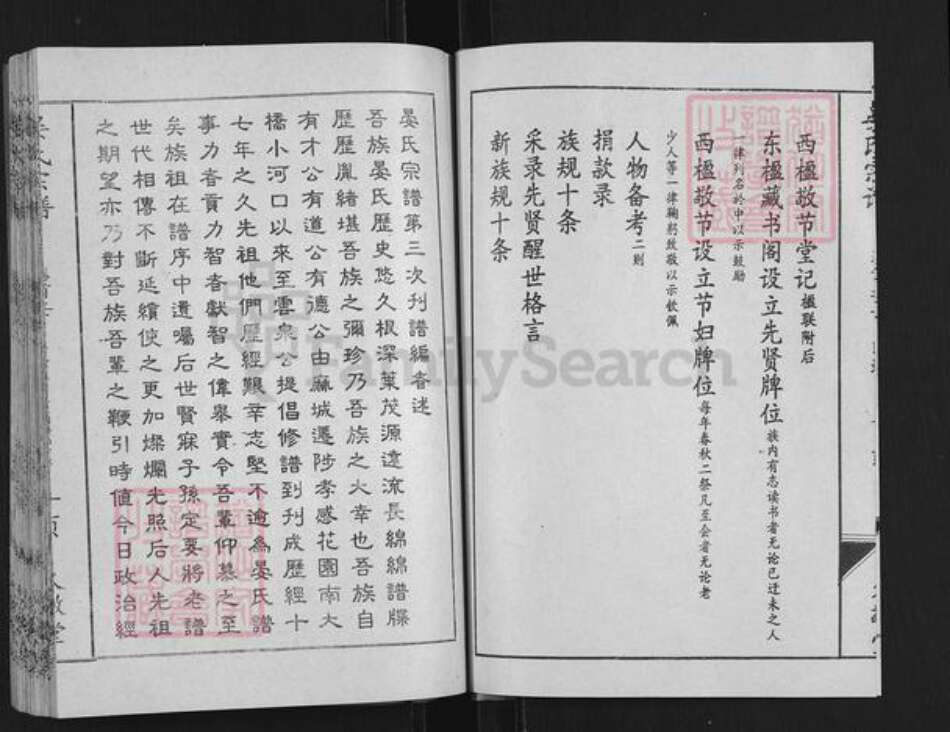 西楹敬节堂记 楹联附后
东楹藏书阁设立先贤牌位 族内有志读书者无论已迁未之人
一律列名於中以示鼓励
西楹敬节设立节妇牌位 每年春秋二祭凡至会者无论老
少人等一律鞠躬致敬以示钦佩
人物备考 二则
捐款录
族规十条
采录先贤醒世格言
新族规十条
晏氏宗譜第三次刊譜編者述
吾族晏氏歷史悠久根深葉茂源遠流長綿綿譜牒
歷歷胤緒堪吾族之彌珍乃吾族之大幸也吾族自
有才公有道公有德公由麻城遷陟孝感花園南大
橋小河口以來至雲泉公提倡修譜到刊成歷經十
七年之久先祖他們歷經艱辛志堅不逾為晏氏譜
事力者貢力智者獻智之偉舉實令吾輩仰慕之至
矣族祖在譜序中遺囑后世賢寐子孫定要將老譜
世代相傳不斷延續使之更加燦爛光照后人先祖
之期望亦乃對吾族吾輩之鞭引時值今日政治經
FamilySearch